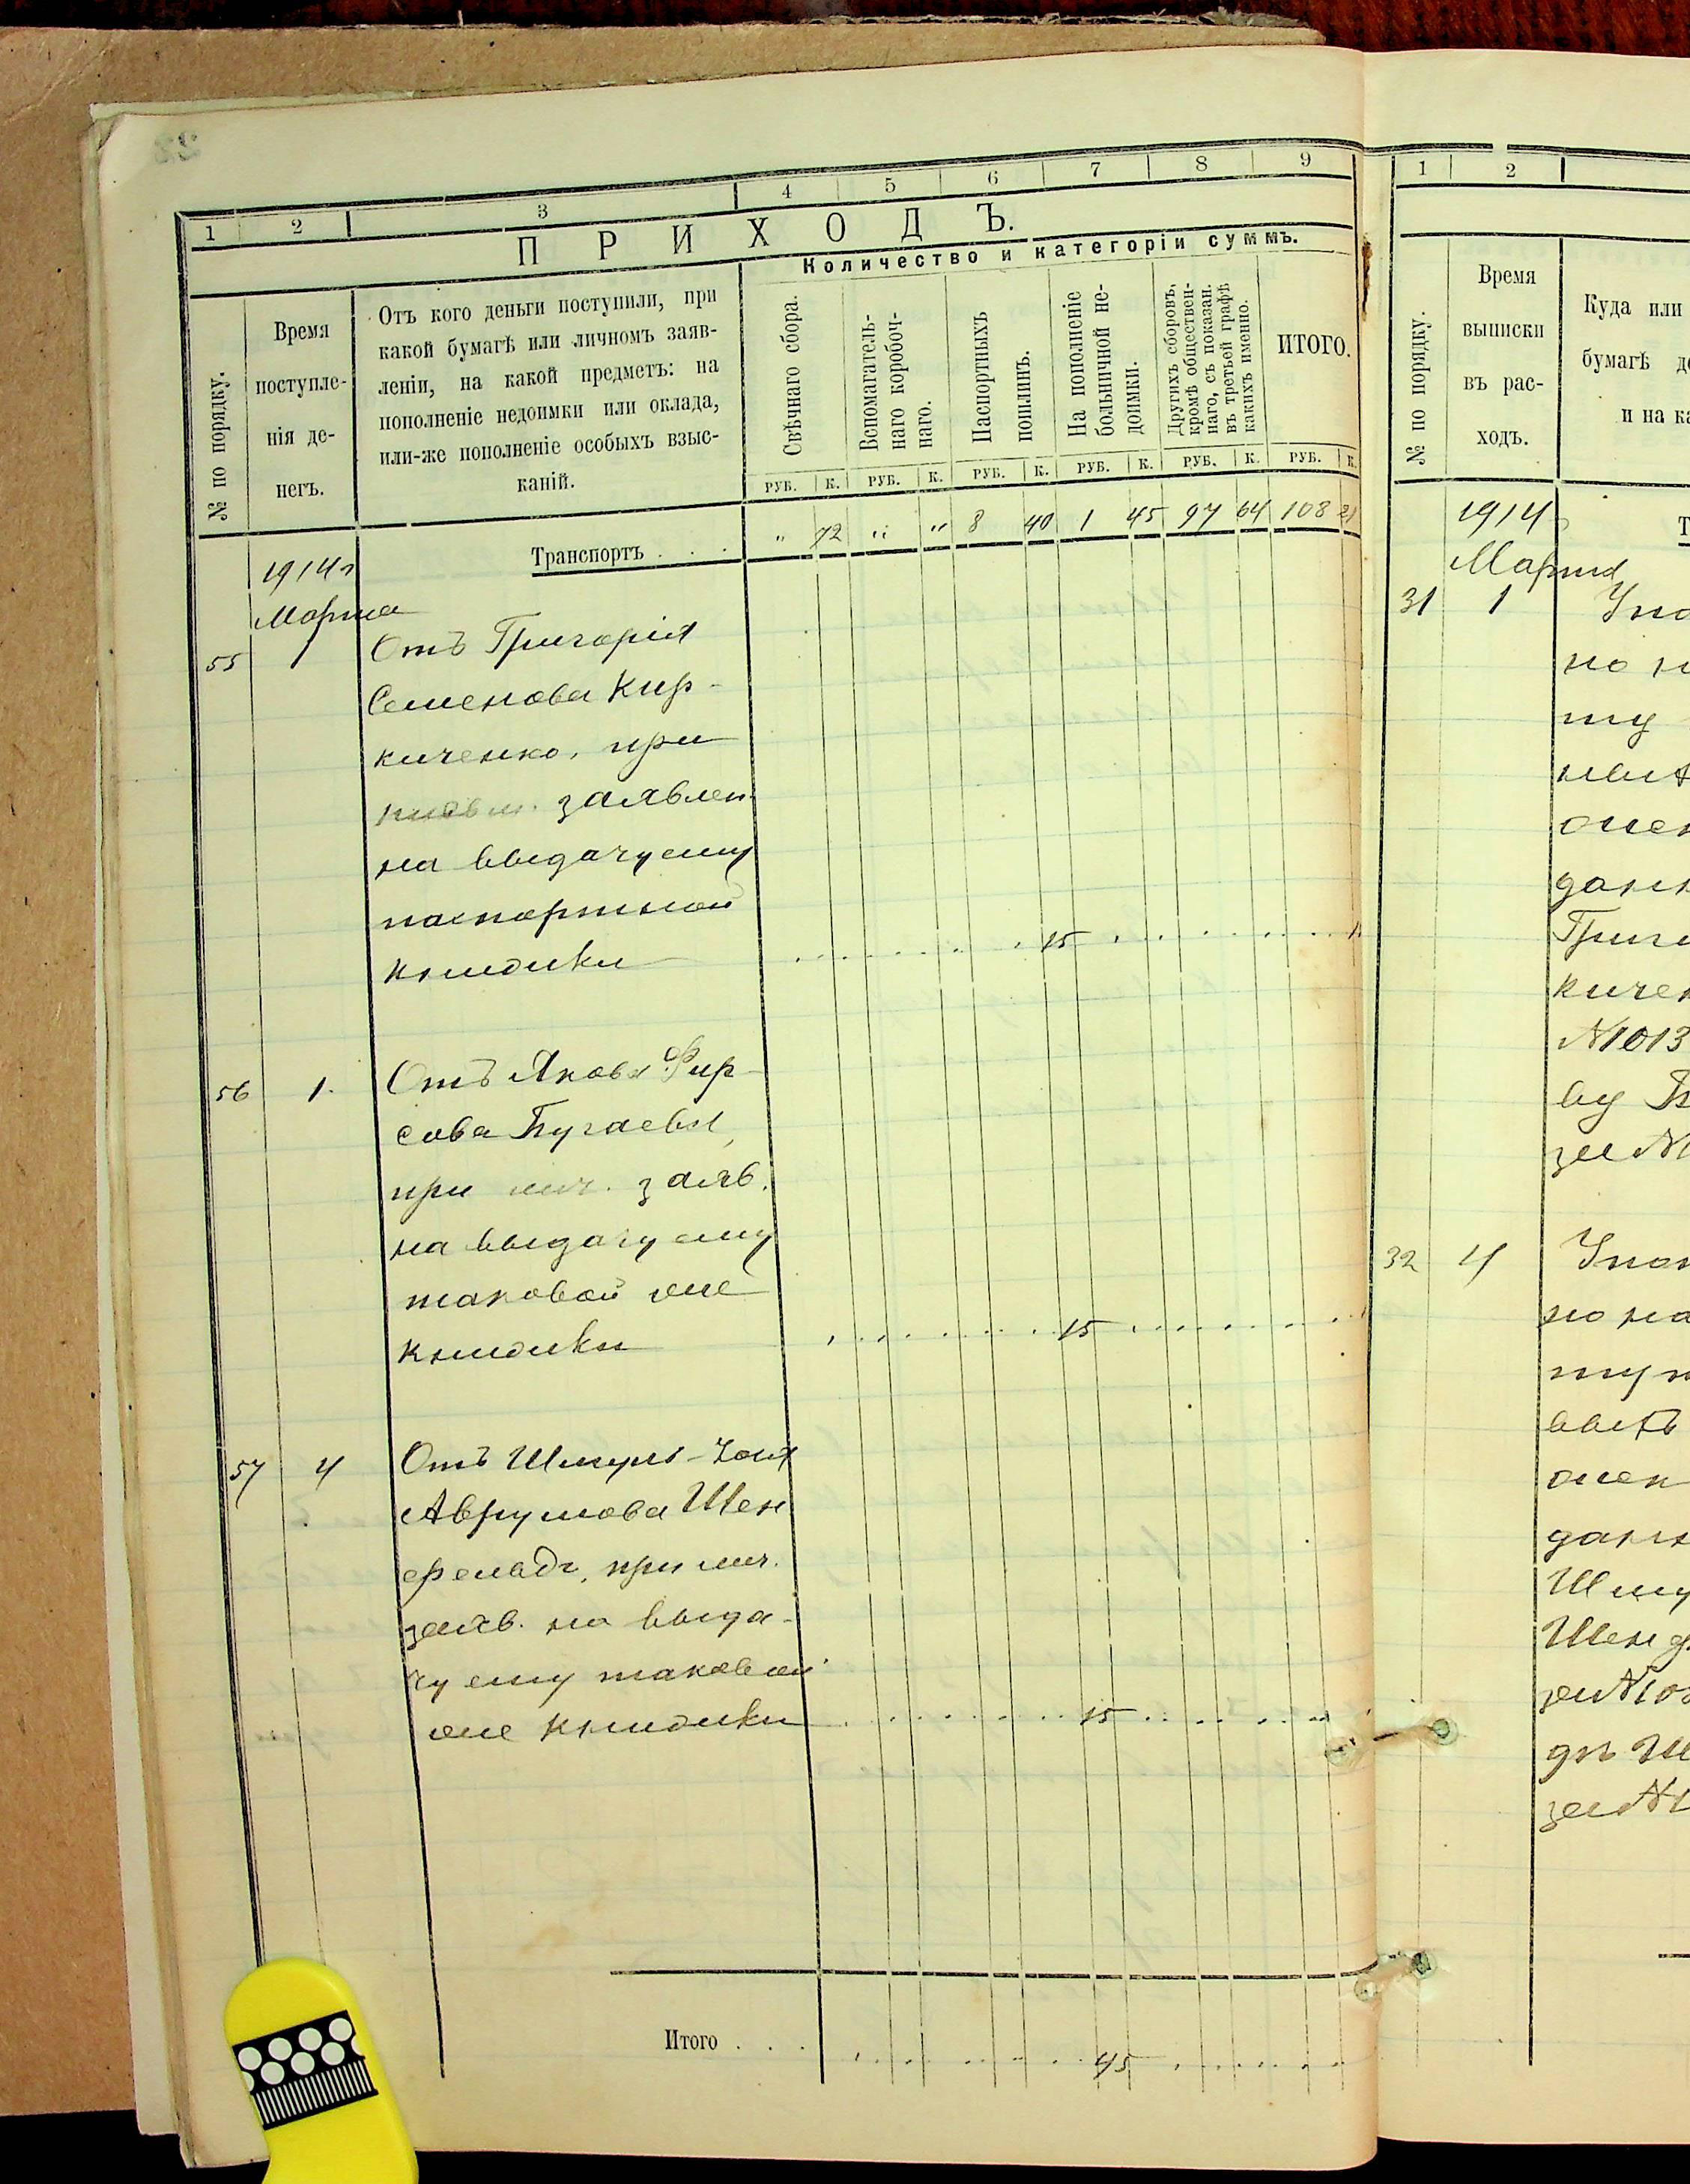 1 2 3 4 5 6 7 8 9
ПРИХОДЪ.
Количество и категоріи суммъ.
№ по порядку.
Время
поступле-
нія де-
негъ.
Отъ кого деньги поступили, при
какой бумагѣ или личномъ заяв-
леніи, на какой предметъ: на
пополненіе недоимки или оклада,
или-же пополненіе особыхъ взыс-
каній.
Свѣчнаго сбора.
Вспомагатель-
наго коробоч-
наго.
Паспортныхъ
пошлинъ.
На пополненіе
больничной не-
доимки.
Другихъ сборовъ,
кромѣ обществен-
наго, съ показан.
въ третьей графѣ
какихъ именно.
ИТОГО.
РУБ. К. РУБ. К. РУБ. К. РУБ. К. РУБ. К. РУБ. К.
Транспортъ . . . " 72 " " 8 40 1 45 97 64 108 21
1914 г
Марта
55 1 Отъ Григорія
Семенова Кир-
киченко, при
заявлен.
на выдачу ему
паспортной
книжки 15
56 1. Отъ Якова Фир-
сова Бугаева,
при лич. заяв.
на выдачу ему
таковой же
книжки 15
57 4 Отъ Шмуля-
Аврумова Шен
фельдъ, при лич.
заяв. на выда-
чу ему таковой
же книжки 15
Итого . . . 45
1 2
№ по порядку.
Время
выписки
въ рас-
ходъ.
Куда или
бумагѣ
и на ка
1914
Марта
31 1
по
ту
дан
Григо
кичен
№1013
ву
за №
32 4
по на
ту
дан
Шму
Шенф
за №10
за №1